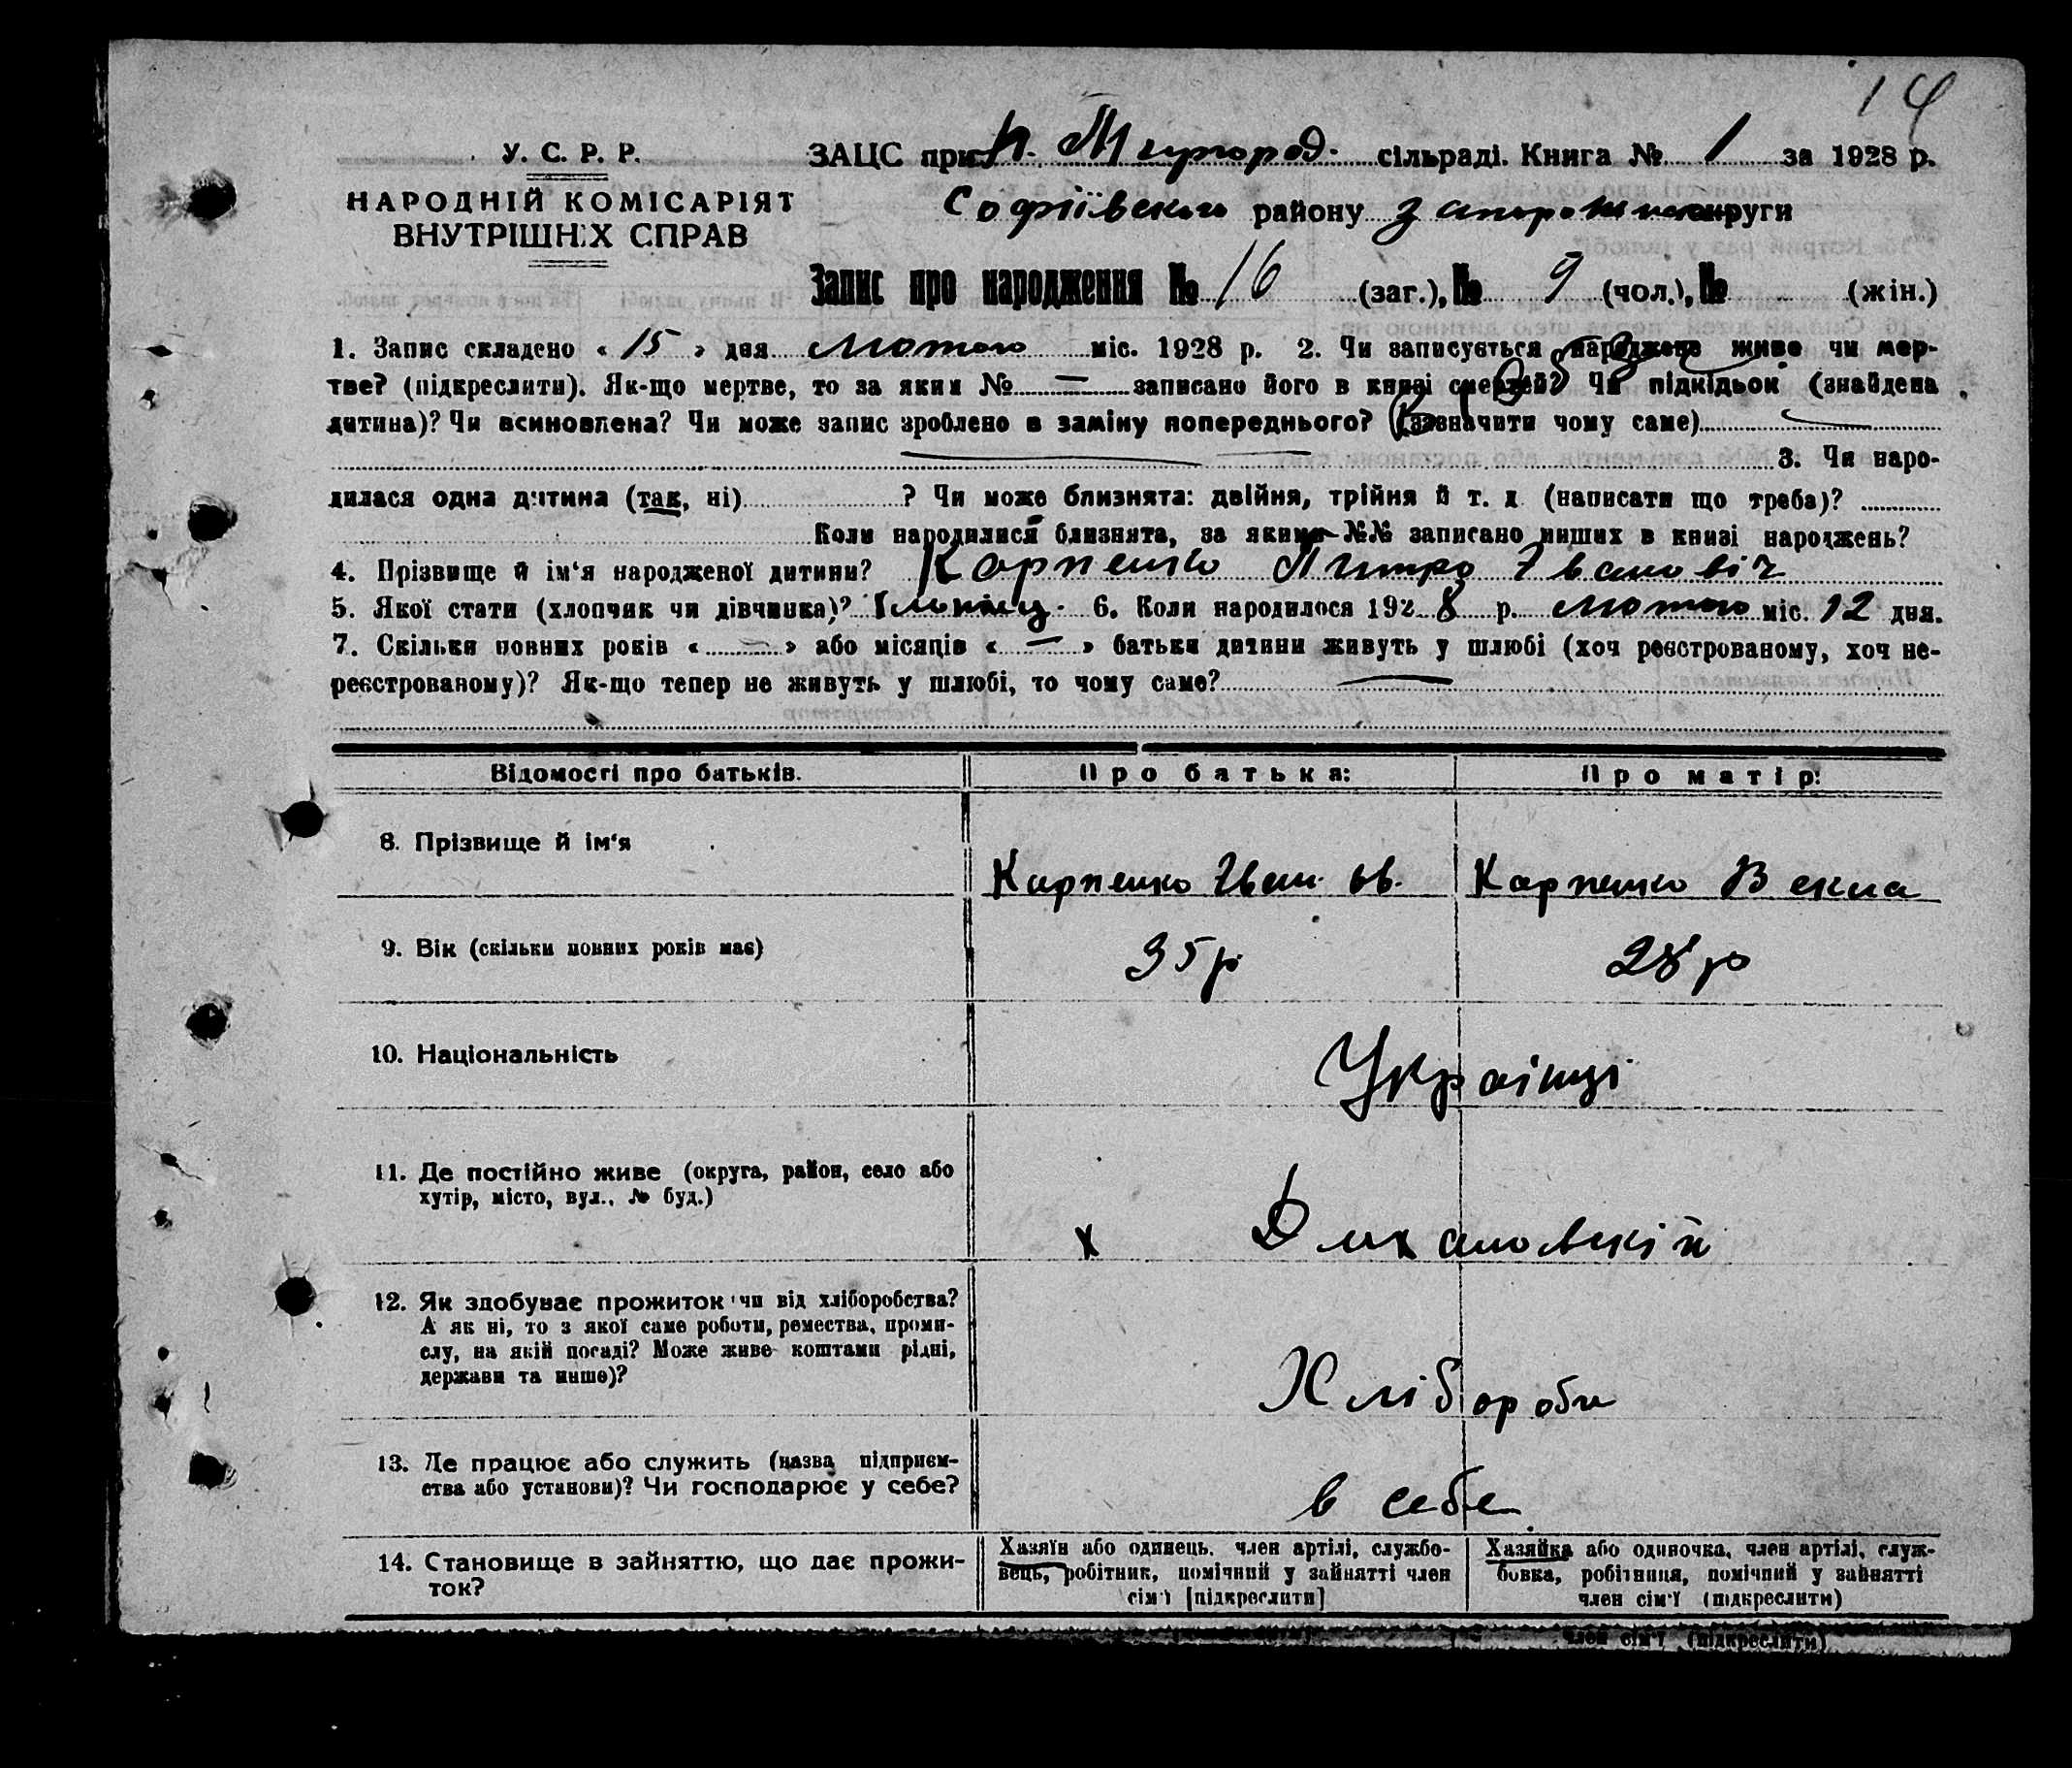 14
У. С. Р. Р.
НАРОДНІЙ КОМІСАРІЯТ
ВНУТРІШНІХ СПРАВ
ЗАЦС при Н. Миргород. сільраді. Книга № 1 за 1928 р.
Софіївського району Запорижск округи
Запис про народження № 16 (заг.), № 9 (чол.), № (жін.)
1. Запис складено « 15 » дня лютого міс. 1928 р. 2. Чи записується народжене живе чи мер-
тве? (підкреслити). Як-що мертве, то за яким № — записано його в книзі смертей? Чи підкідьок (знайдена
дитина)? Чи всиновлена? Чи може запис зроблено в заміну попереднього? (зазначити чому саме)
3. Чи наро-
дилася одна дитина (так, ні) ? Чи може близнята: двійня, трійня й т. д. (написати що треба)?
Коли народилися близнята, за якими №№ записано инших в книзі народжень?
4. Прізвище й ім'я народженої дитини? Карпенко Митро Іванович
5. Якої стати (хлопчик чи дівчинка)? 6. Коли народилося 1928 р. лютого міс. 12 дня.
7. Скільки повних років « — » або місяців « — » батьки дитини живуть у шлюбі (хоч реєстрованому, хоч не-
реєстрованому)? Як-що тепер не живуть у шлюбі, то чому саме? —
Відомості про батьків. Про батька: Про матір:
8. Прізвище й ім'я Карпенко Іван Карпенко Векла
9. Вік (скільки повних років має) 35 р 28 р
10. Національність Українці
11. Де постійно живе (округа, район, село або
хутір, місто, вул., № буд.) х
12. Як здобуває прожиток чи від хліборобства?
А як ні, то з якої саме роботи, ремества, проми-
слу, на якій посаді? Може живе коштами рідні,
держави та инше)? Хлібороби
13. Де працює або служить (назва підприєм-
ства або установи)? Чи господарює у себе? в себе
14. Становище в зайняттю, що дає прожи-
ток?
Хазяїн або одинець, член артілі, службо-
вець, робітник, помічний у зайнятті член
сім'ї [підкреслити]
Хазяйка або одиночка, член артілі, служ-
бовка, робітниця, помічний у зайнятті
член сім'ї (підкреслити)
член сім'ї (підкреслити)